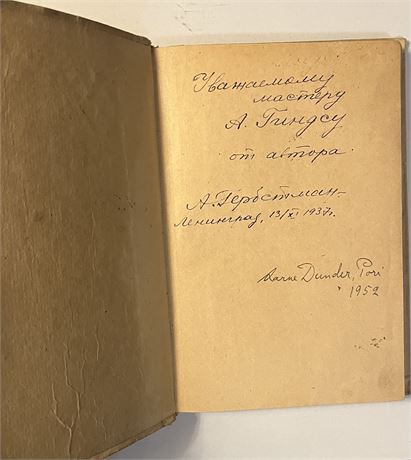 Уважаемому
мастеру
А. Гиндсу
от автора.
А. Гербстман-
Ленинград, 13/XI 1937г.
Aarne Dunder, Pori
1952